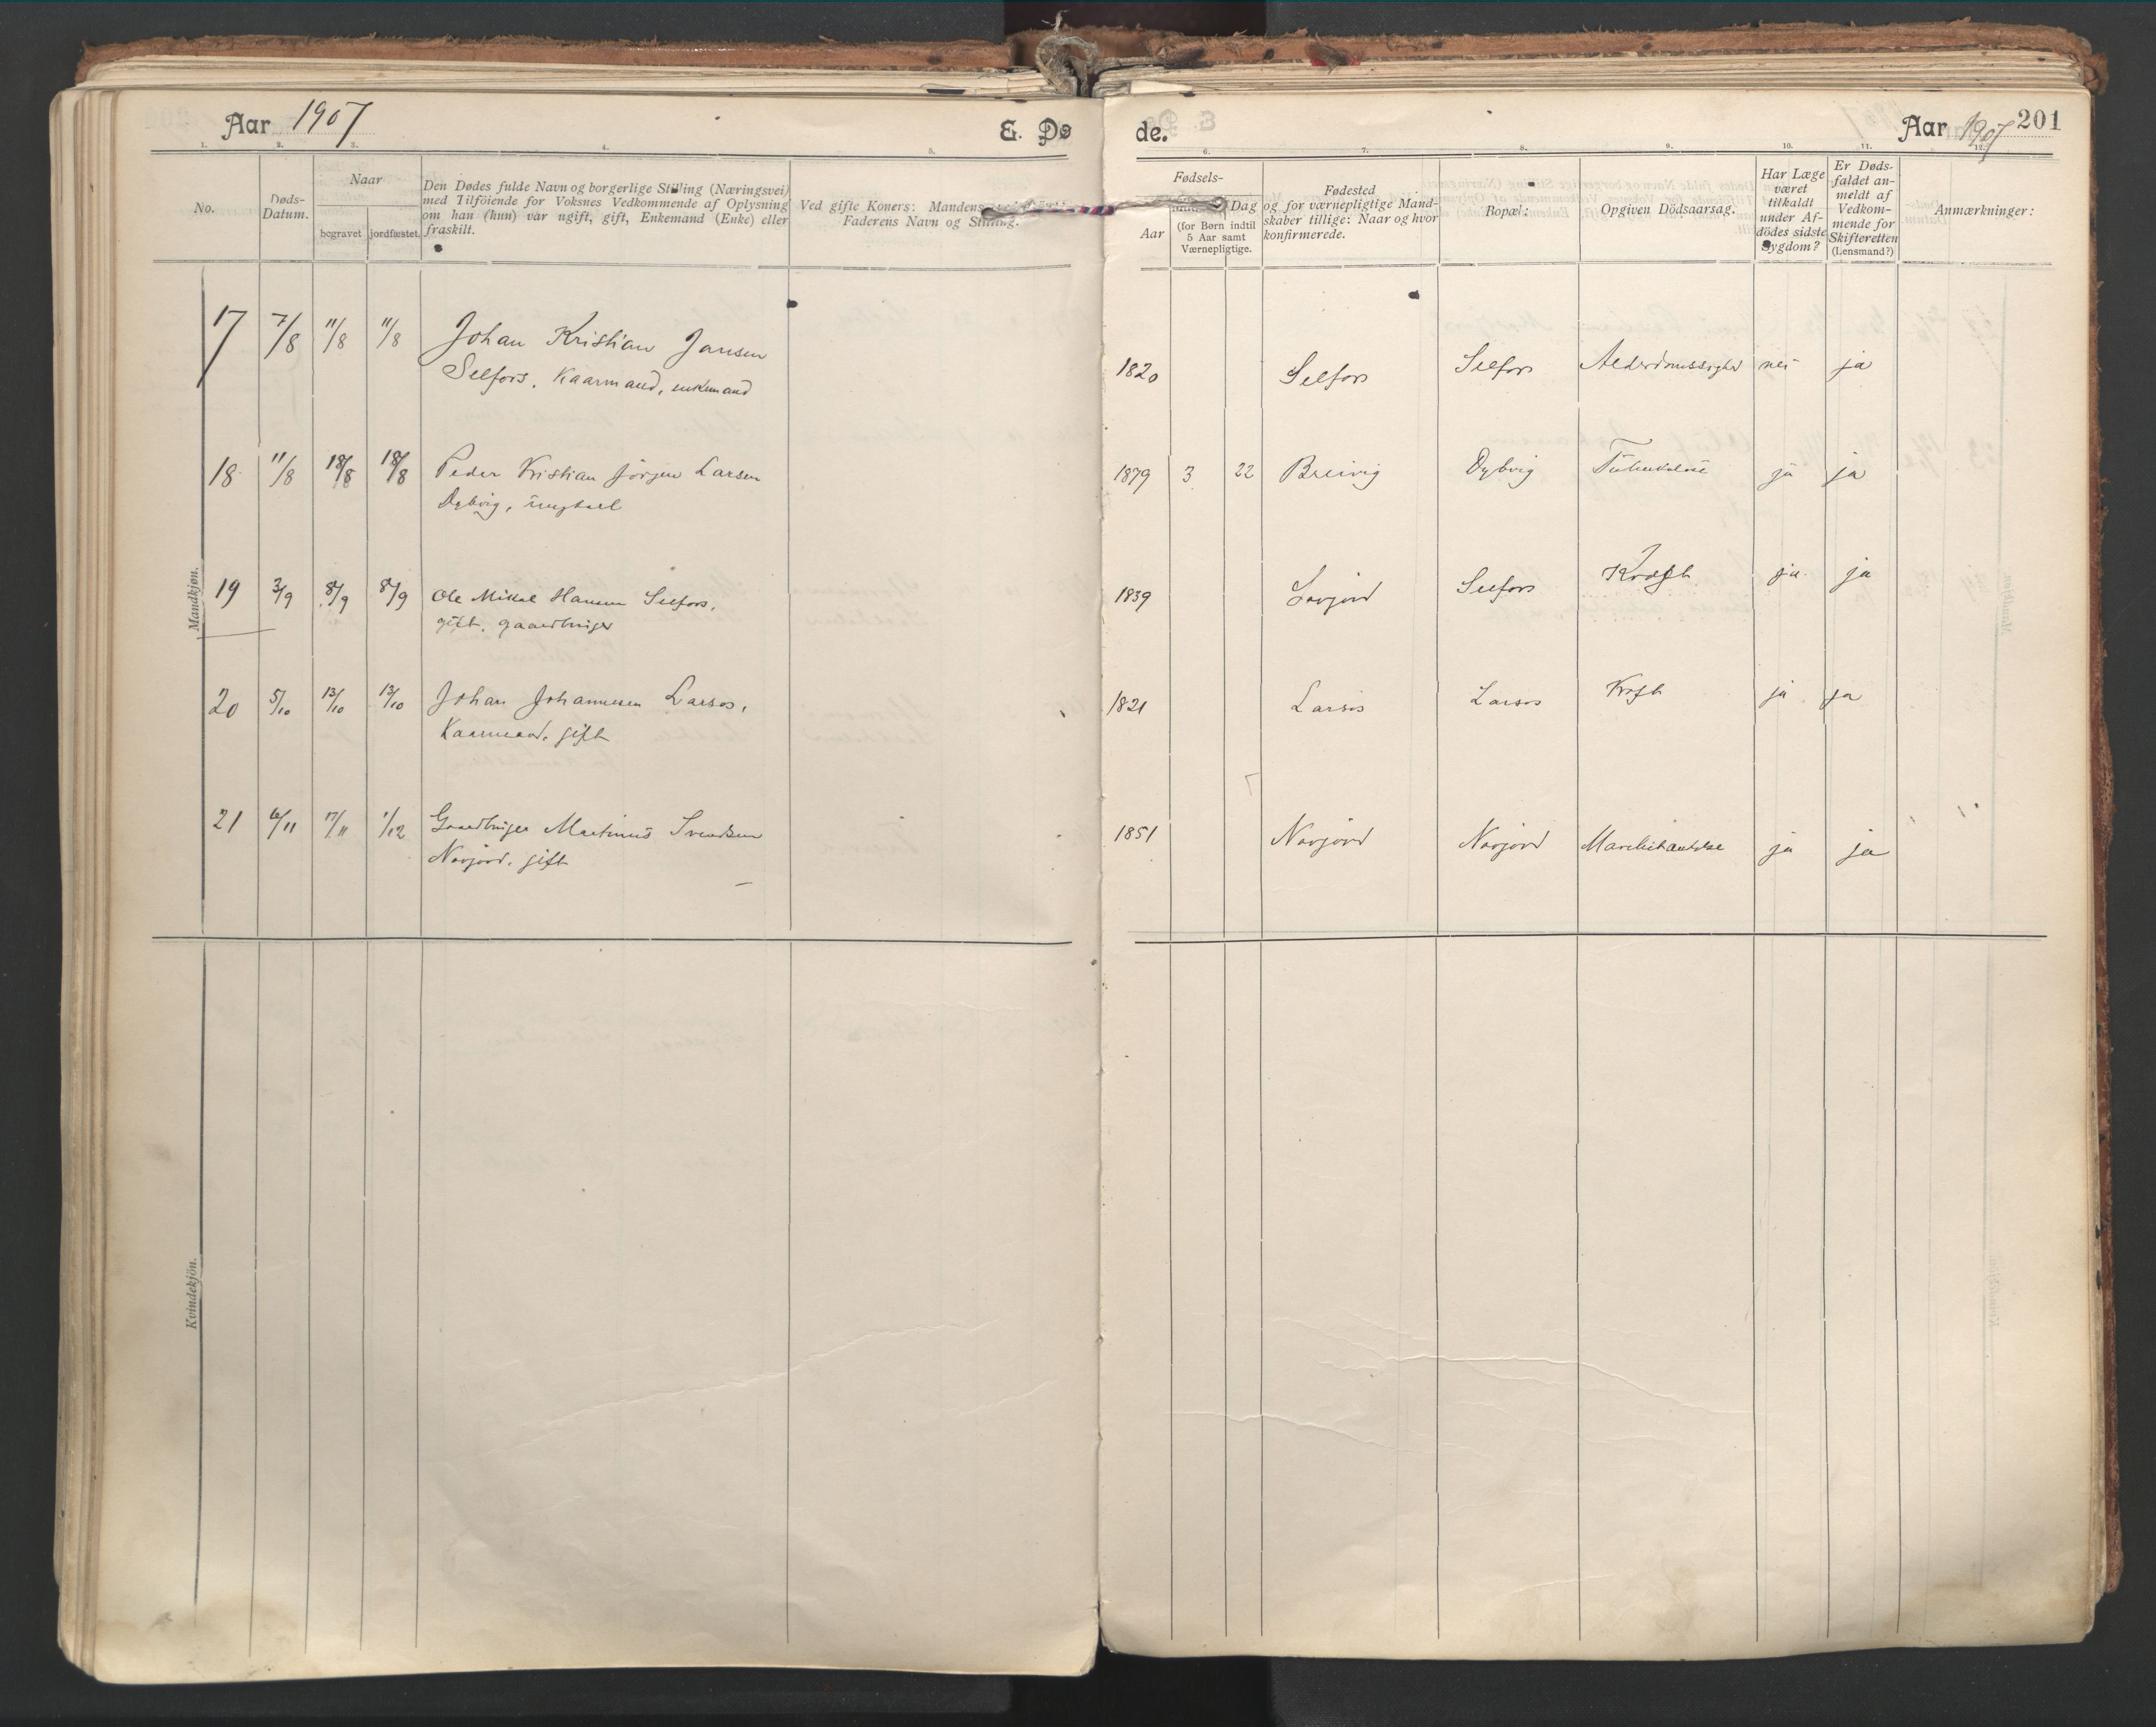 Aar 1907
E. Dø
de.
Aar 1907
201
1. 2. 3. 4. 5. 6. 7. 8. 9. 10. 11. 12.
No.
Døds-
Datum.
Naar
begravet
jordfæstet.
Den Dødes fulde Navn og borgerlige Stilling (Næringsvei)
med Tilföiende for Voksnes Vedkommende af Oplysning
om han (hun) var ugift, gift, Enkemand (Enke) eller
fraskilt.
Ved gifte Koners: Mandens
Faderens Navn og Stilling.
Fødsels-
Aar
Dag
(for Børn indtil
5 Aar samt
Værnepligtige.
Fødested
og for værnepligtige Mand-
skaber tillige: Naar og hvor
konfirmerede.
Bopæl:
Opgiven Dödsaarsag.
Har Læge
været
tilkaldt
under Af-
dödes sidste
Sygdom?
Er Døds-
faldet an-
meldt af
Vedkom-
mende for
Skifteretten
(Lensmand?)
Anmærkninger:
Mandkjøn.
17 7/8 11/8 11/8 Johan Kristian Jansen
Selfors. Kaarmand, enkemand
1820 Selfors Selfors Alderdomssvaghed nei ja
18 11/8 18/8 18/8 Peder Kristian Jörgen Larsen
Dybvig, ungkarl
1879 3 22 Breivig Dybvig Tuberkulose ja ja
19 3/9 8/9 8/9 Ole Mikal Hansen Selfors,
gift. gaardbruger
1839 Selfors Kræft ja ja
20 5/10 13/10 13/10 Johan Johannesen Larsos,
Kaarmand. gift
1821 Larsos Larsos Kræft ja ja
21 6/11 17/11 1/12 Gaardbruger Martinus Svendsen
Navjord. gift
1851 Navjord Navjord ja ja
Kvindekjön.